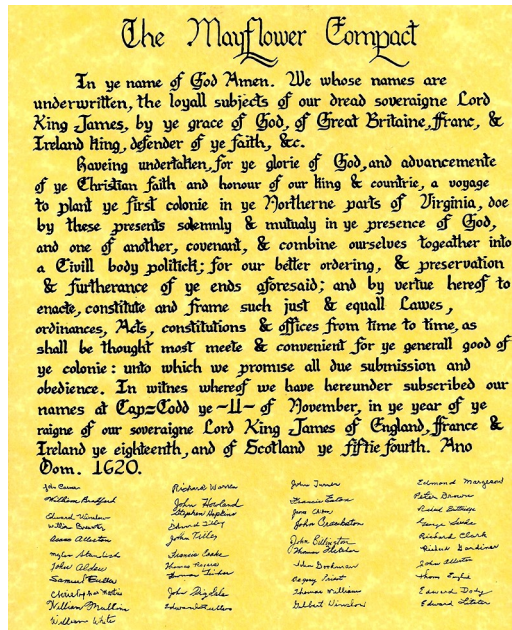 The Mayflower Compact
In ye name of God Amen. We whose names are
underwritten, the loyall subjects of our dread soveraigne Lord
King James, by ye grace of God, of Great Britaine, Franc, &
Ireland king, defender of ye faith, &c.
Haveing undertaken, for ye glorie of God, and advancemente
of ye Christian faith and honour of our king & countrie, a voyage
to plant ye first colonie in ye Northerne parts of Virginia, doe
by these presents solemnly & mutualy in ye presence of God,
and one of another, covenant, & combine ourselves togeather into
a Civill body politick; for our better ordering, & preservation
& furtherance of ye ends aforesaid; and by vertue hereof to
enacte, constitute and frame such just & equall Lawes,
ordinances, Acts, constitutions & offices from time to time, as
shall be thought most meete & convenient for ye generall good of
ye colonie: unto which we promise all due submission and
obedience. In witnes whereof we have hereunder subscribed our
names at Cap=Codd ye ~11~ of November, in ye year of ye
raigne of our soveraigne Lord King James of England, france &
Ireland ye eighteenth, and of Scotland ye fiftie fourth. Ano
Dom. 1620.
John Carver
William Bradford
Edward Winslow
William Brewster
Isaac Allerton
Myles Standish
John Alden
Samuel Fuller
William Mullins
William White
Richard Warren
John Howland
Stephen Hopkins
Edward Tilley
John Tilley
Francis Cooke
Thomas Rogers
John Rigdale
Edward Fuller
John Turner
Francis Eaton
John Crackston
John Billington
Thomas Fletcher
John Goodman
Degory Priest
Thomas Williams
Gilbert Winslow
Edmond Margeson
Peter Brown
George Soule
Richard Clark
Richard Gardiner
John Allerton
Thomas English
Edward Doty
Edward Leister